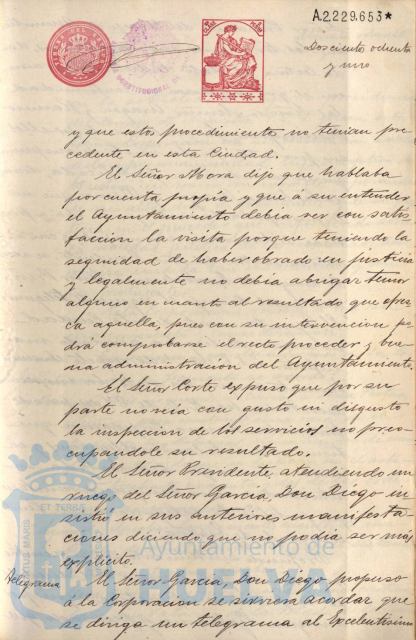 A.2.229.653*
Doscientos ochenta
y uno
y que estos procedimientos no tenian pre
cedente en esta Ciudad.
El Señor Mora dijo que hablaba
por cuenta propia y que á su entender
el Ayuntamiento debia ver con satis
faccion la visita porque teniendo la
seguridad de haber obrado en justicia
y legalmente no debia abrigar temor
alguno en cuanto al resultado que ofrez
ca aquella, pues con su intervencion po
drá comprobarse el recto proceder y bue
na administracion del Ayuntamiento.
El Señor Corte expuso que por su
parte no veia con gusto ni disgusto
la inspeccion de los servicios no preo
cupandole su resultado.
El Señor Presidente, atendiendo un
ruego del Señor Garcia, Don Diego in
sistió en sus anteriores manifesta
ciones diciendo que no podia ser mas
explicito.
Telegrama
El Señor Garcia, Don Diego propuso
á la Corporacion se sirviera acordar que
se dirija un telegrama al Excelentisimo
Ayuntamiento de
HUELVA